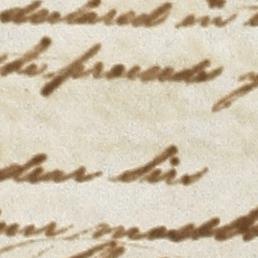 declared in
the proceeds
dear Sir
your most